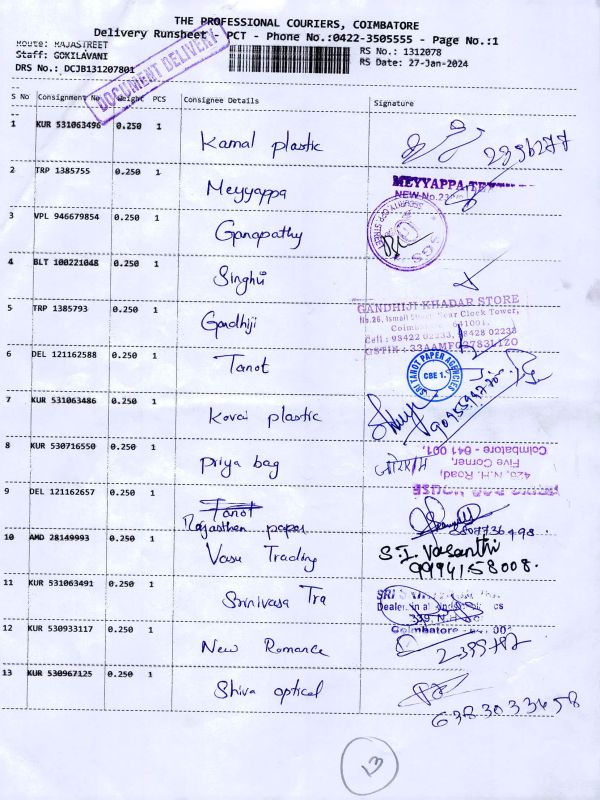 THE PROFESSIONAL COURIERS, COIMBATORE
Delivery Runsheet - PCT - Phone No.:0422-3505555 - Page No.:1
Route: RAJASTREET
RS No.: 1312078
Staff: GOKILAVANI
RS Date: 27-Jan-2024
DRS No.: DCJB131207801
DOCUMENT DELIVERY
S No Consignment No Weight PCS Consignee Details Signature
1 KUR 531063496 0.250 1 Kamal plastic 2396277
2 TRP 1385755 0.250 1 Meyyappa
MEYYAPPA
NEW No.
3 VPL 946679854 0.250 1 Ganapathy
SGS
4 BLT 100221048 0.250 1 Singhvi
5 TRP 1385793 0.250 1 Gandhiji
GANDHIJI KHADAR STORE
No.26, Ismail Street Near Clock Tower,
Coimbatore 641001.
Cell : 98422 02233, 98428 02233
GSTIN : 33AAMFG2783L1ZO
6 DEL 121162588 0.250 1 Tanot
SRI TANOT PAPER AGENCIES
CBE 1.
7 KUR 531063486 0.250 1 Kovai plastic
8 KUR 530716550 0.250 1 Priya bag
BAG HOUSE
426, N.H. Road,
Five Corner,
Coimbatore - 641 001.
9 DEL 121162657 0.250 1 Tanot
Rajasthan paper
10 AMD 28149993 0.250 1 Vasu Trading S.I. Vasanthi
9994158008.
11 KUR 531063491 0.250 1 Srinivasa Tra
SRI
Dealer in al
Coimbatore - 641 001
12 KUR 530933117 0.250 1 New Romance
13 KUR 530967125 0.250 1 Shiva optical 6383033658
13